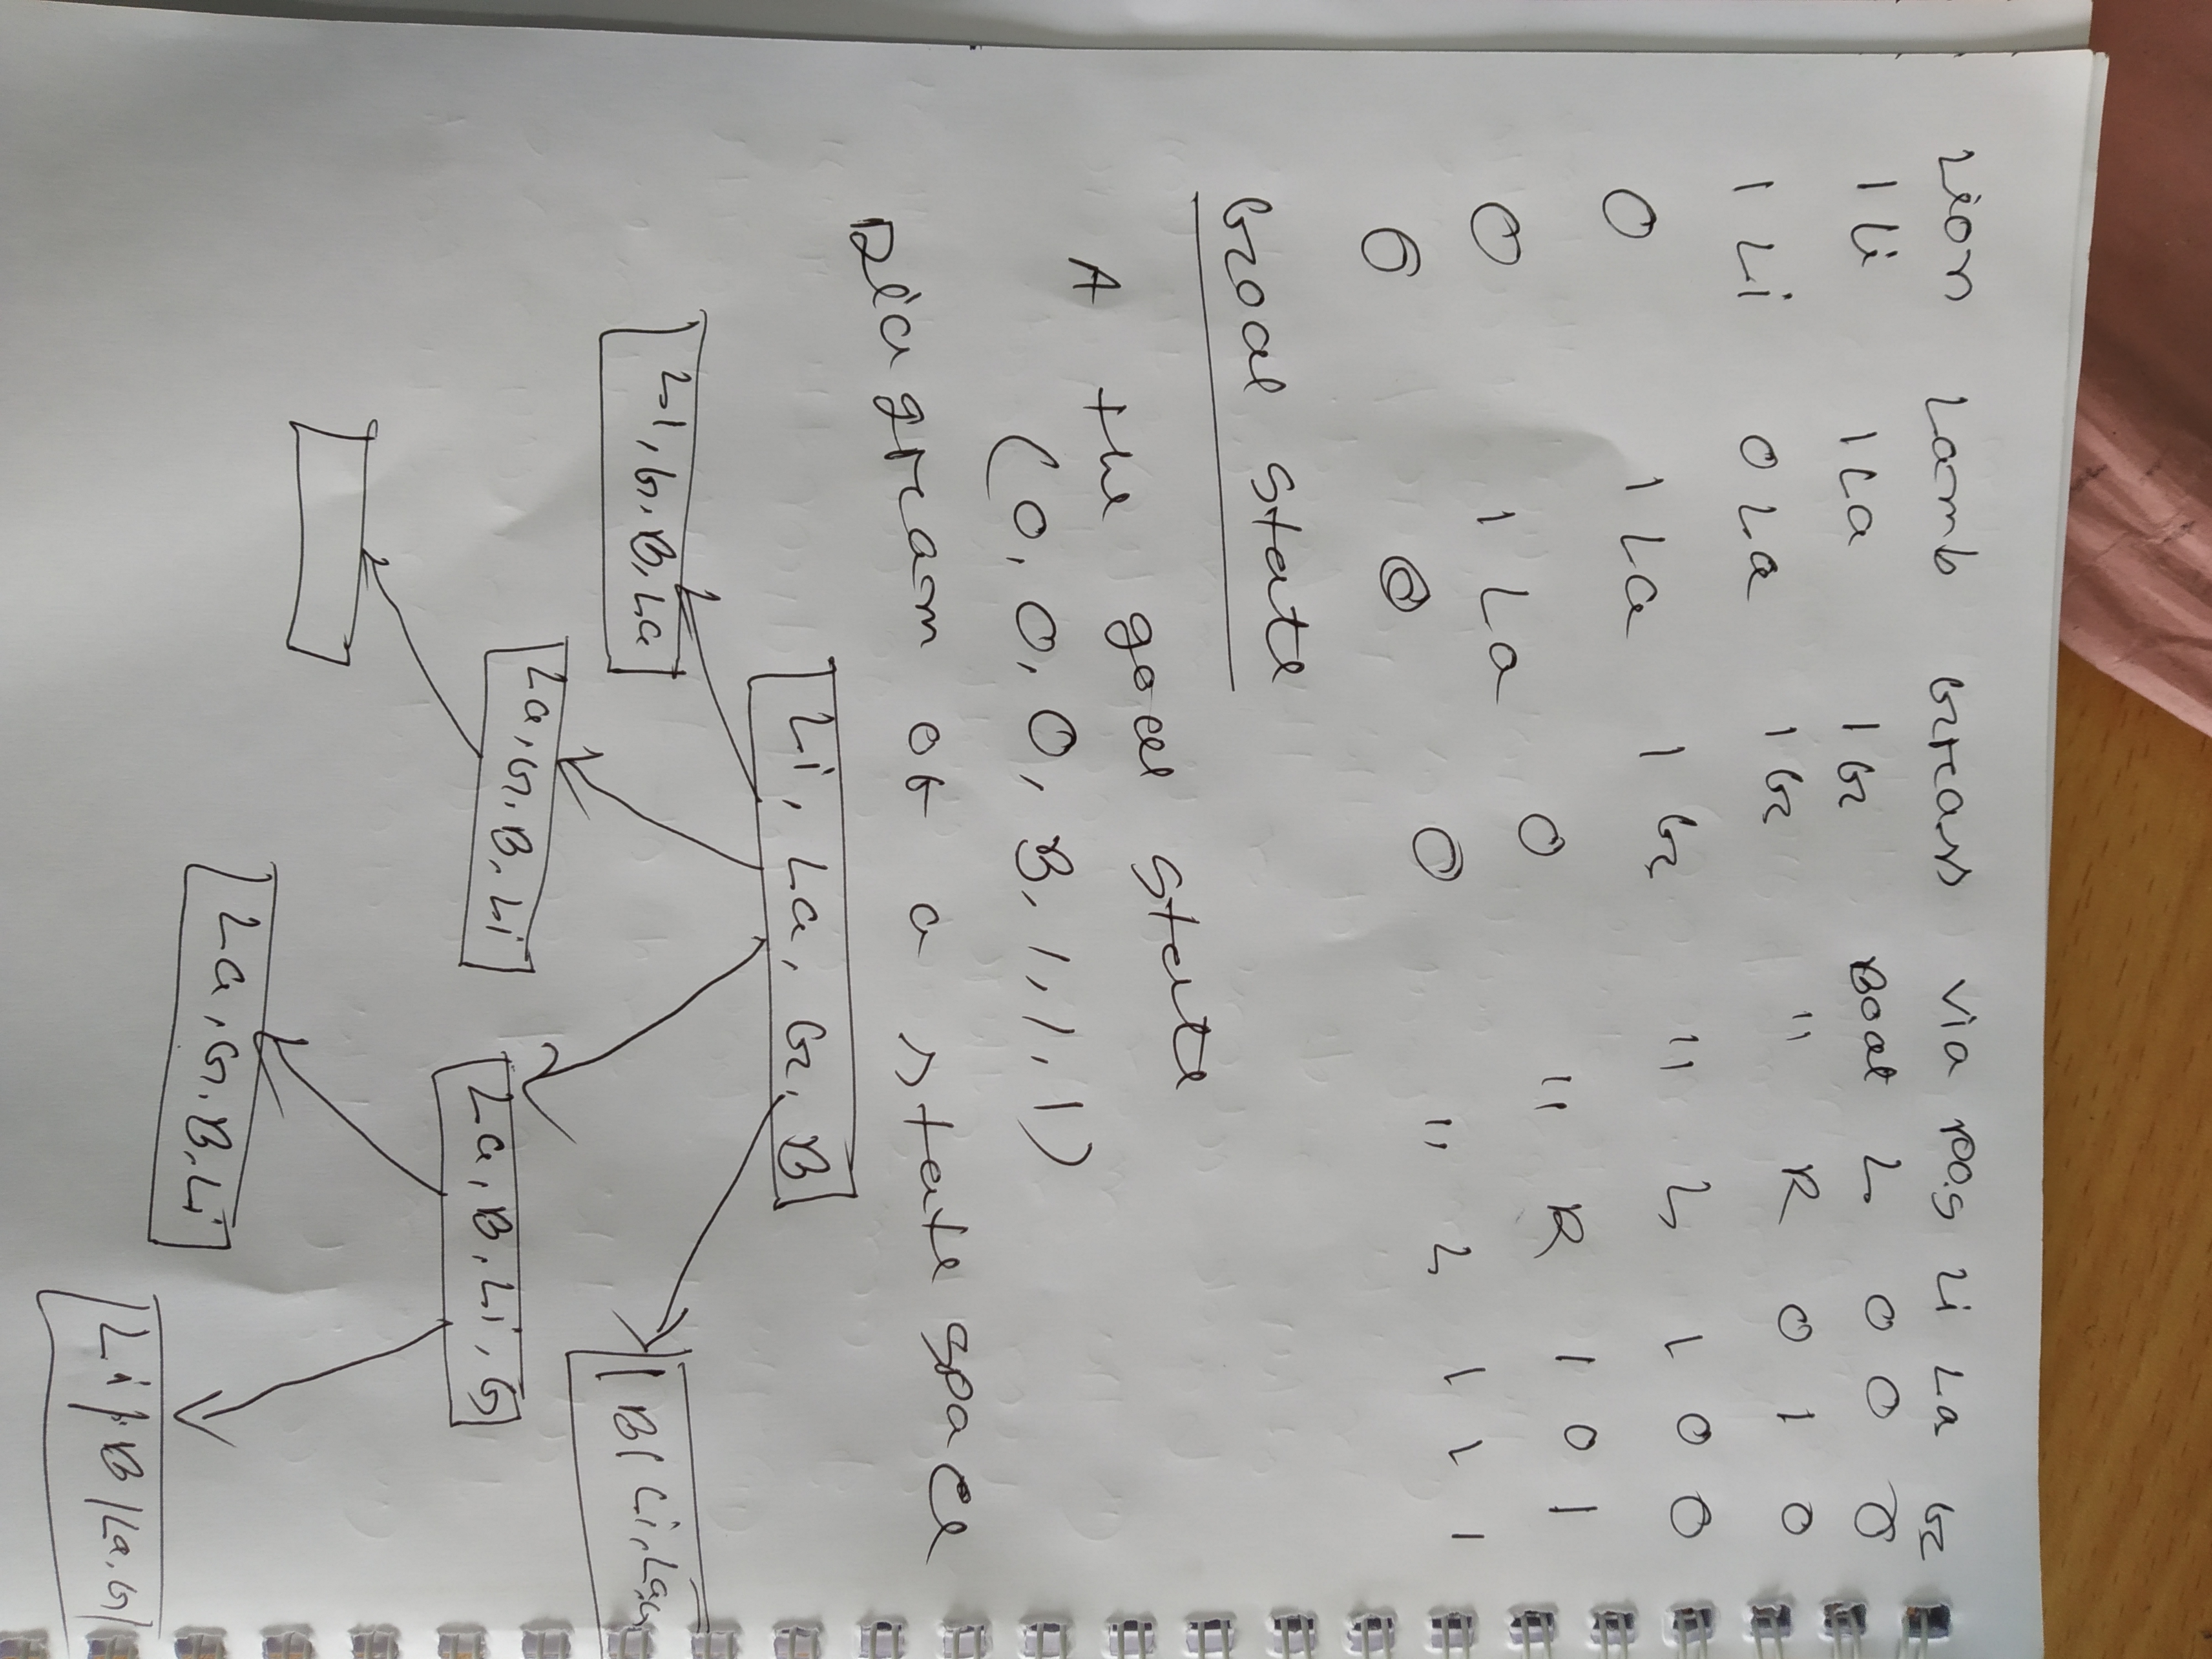 Lion Lamb Grass via pos Li La G
1 Li 1 La 1 G Boat L 0 0 0
1 Li 0 La 1 G " R 0 1 0
0 1 La 1 G " L 1 0 0
0 1 La 0 " R 1 0 1
0 0 0 " L 1 1 1
Goal state
A the goal state
(0, 0, 0, B, 1, 1, 1)
Diagram of a state space
Li, La, G, B
Li, G, B, La
| B | Li, La, G
La, G, B, Li
La, B, Li, G
La, G, B, Li
Li | B | La, G